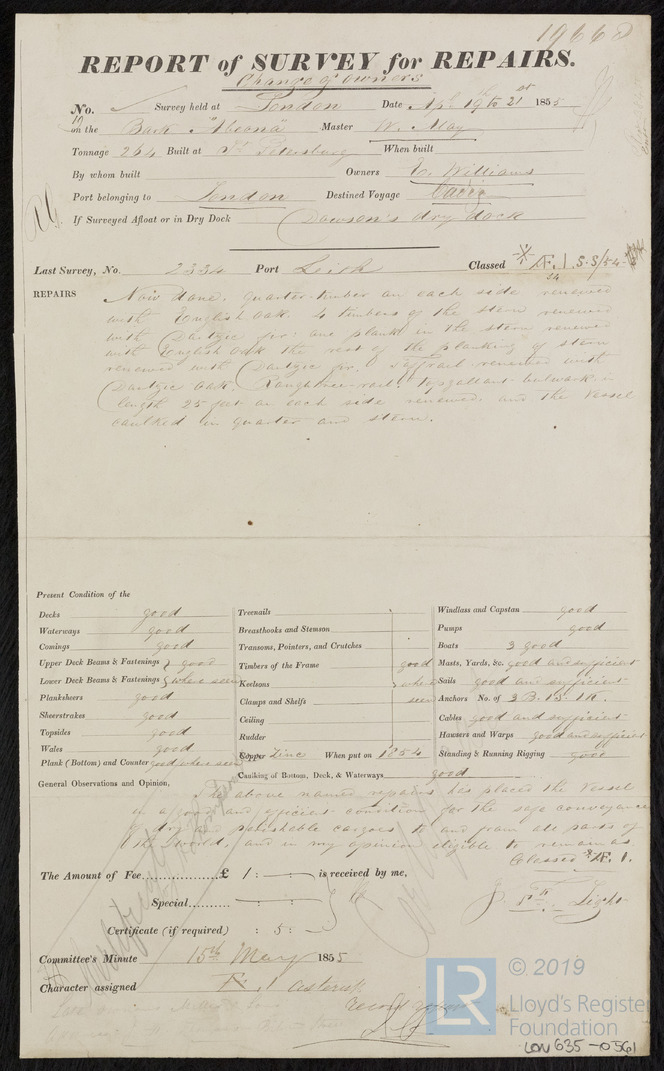 19668
REPORT of SURVEY for REPAIRS.
Change of owners
No. Survey held at London Date Apl 19th to 21st 1855
on the Bark "Alcona" Master W. May
Tonnage 264 Built at St Petersburg When built
By whom built Owners Williams
Port belonging to London Destined Voyage
If Surveyed Afloat or in Dry Dock Dowson's dry dock
Last Survey, No. 2334 Port Leith Classed Æ. 1. S.S/54
REPAIRS Now done, quarter-timber on each side renewed
with English Oak 4 timbers of the stern renewed
with Dantzic fir: one plank in the stern renewed
with English Oak the rest of the planking of stern
renewed with Dantzic fir. Taffrael renewed with
Dantzic Oak. Roughtree-rael: Topgallant bulwark in
length 25 feet on each side renewed and the Vessel
caulked in quarter and stern.
Present Condition of the
Decks good
Waterways good
Comings good
Upper Deck Beams & Fastenings } good
Lower Deck Beams & Fastenings } where seen
Planksheers good
Sheerstrakes good
Topsides good
Wales good
Plank (Bottom) and Counter good where seen
Treenails
Breasthooks and Stemson
Transoms, Pointers, and Crutches
Timbers of the Frame good
Keelsons where
Clamps and Shelfs seen
Ceiling
Rudder
Copper Zinc When put on 1854
Caulking of Bottom, Deck, & Waterways good
Windlass and Capstan good
Pumps good
Boats 3 good
Masts, Yards, &c. good and sufficient
Sails good and sufficient
Anchors No. of 3 B. 1 S. 1 K.
Cables good and sufficient
Hausers and Warps good and sufficient
Standing & Running Rigging good
General Observations and Opinion, The above named repairs has places the Vessel
in a good and efficient condition for the safe conveyance
of dry and perishable cargoes to and from all parts of
the World, and in my opinion eligible to remain as
Classed Æ. 1.
The Amount of Fee £ 1 : - : - is received by me,
Special - : - : -
Certificate (if required) : 5 : -
Light
Committee's Minute 15th May 1855
Character assigned Æ. 1 asterisk
© 2019
LR
Lloyd's Register
Foundation
LON 635-0361